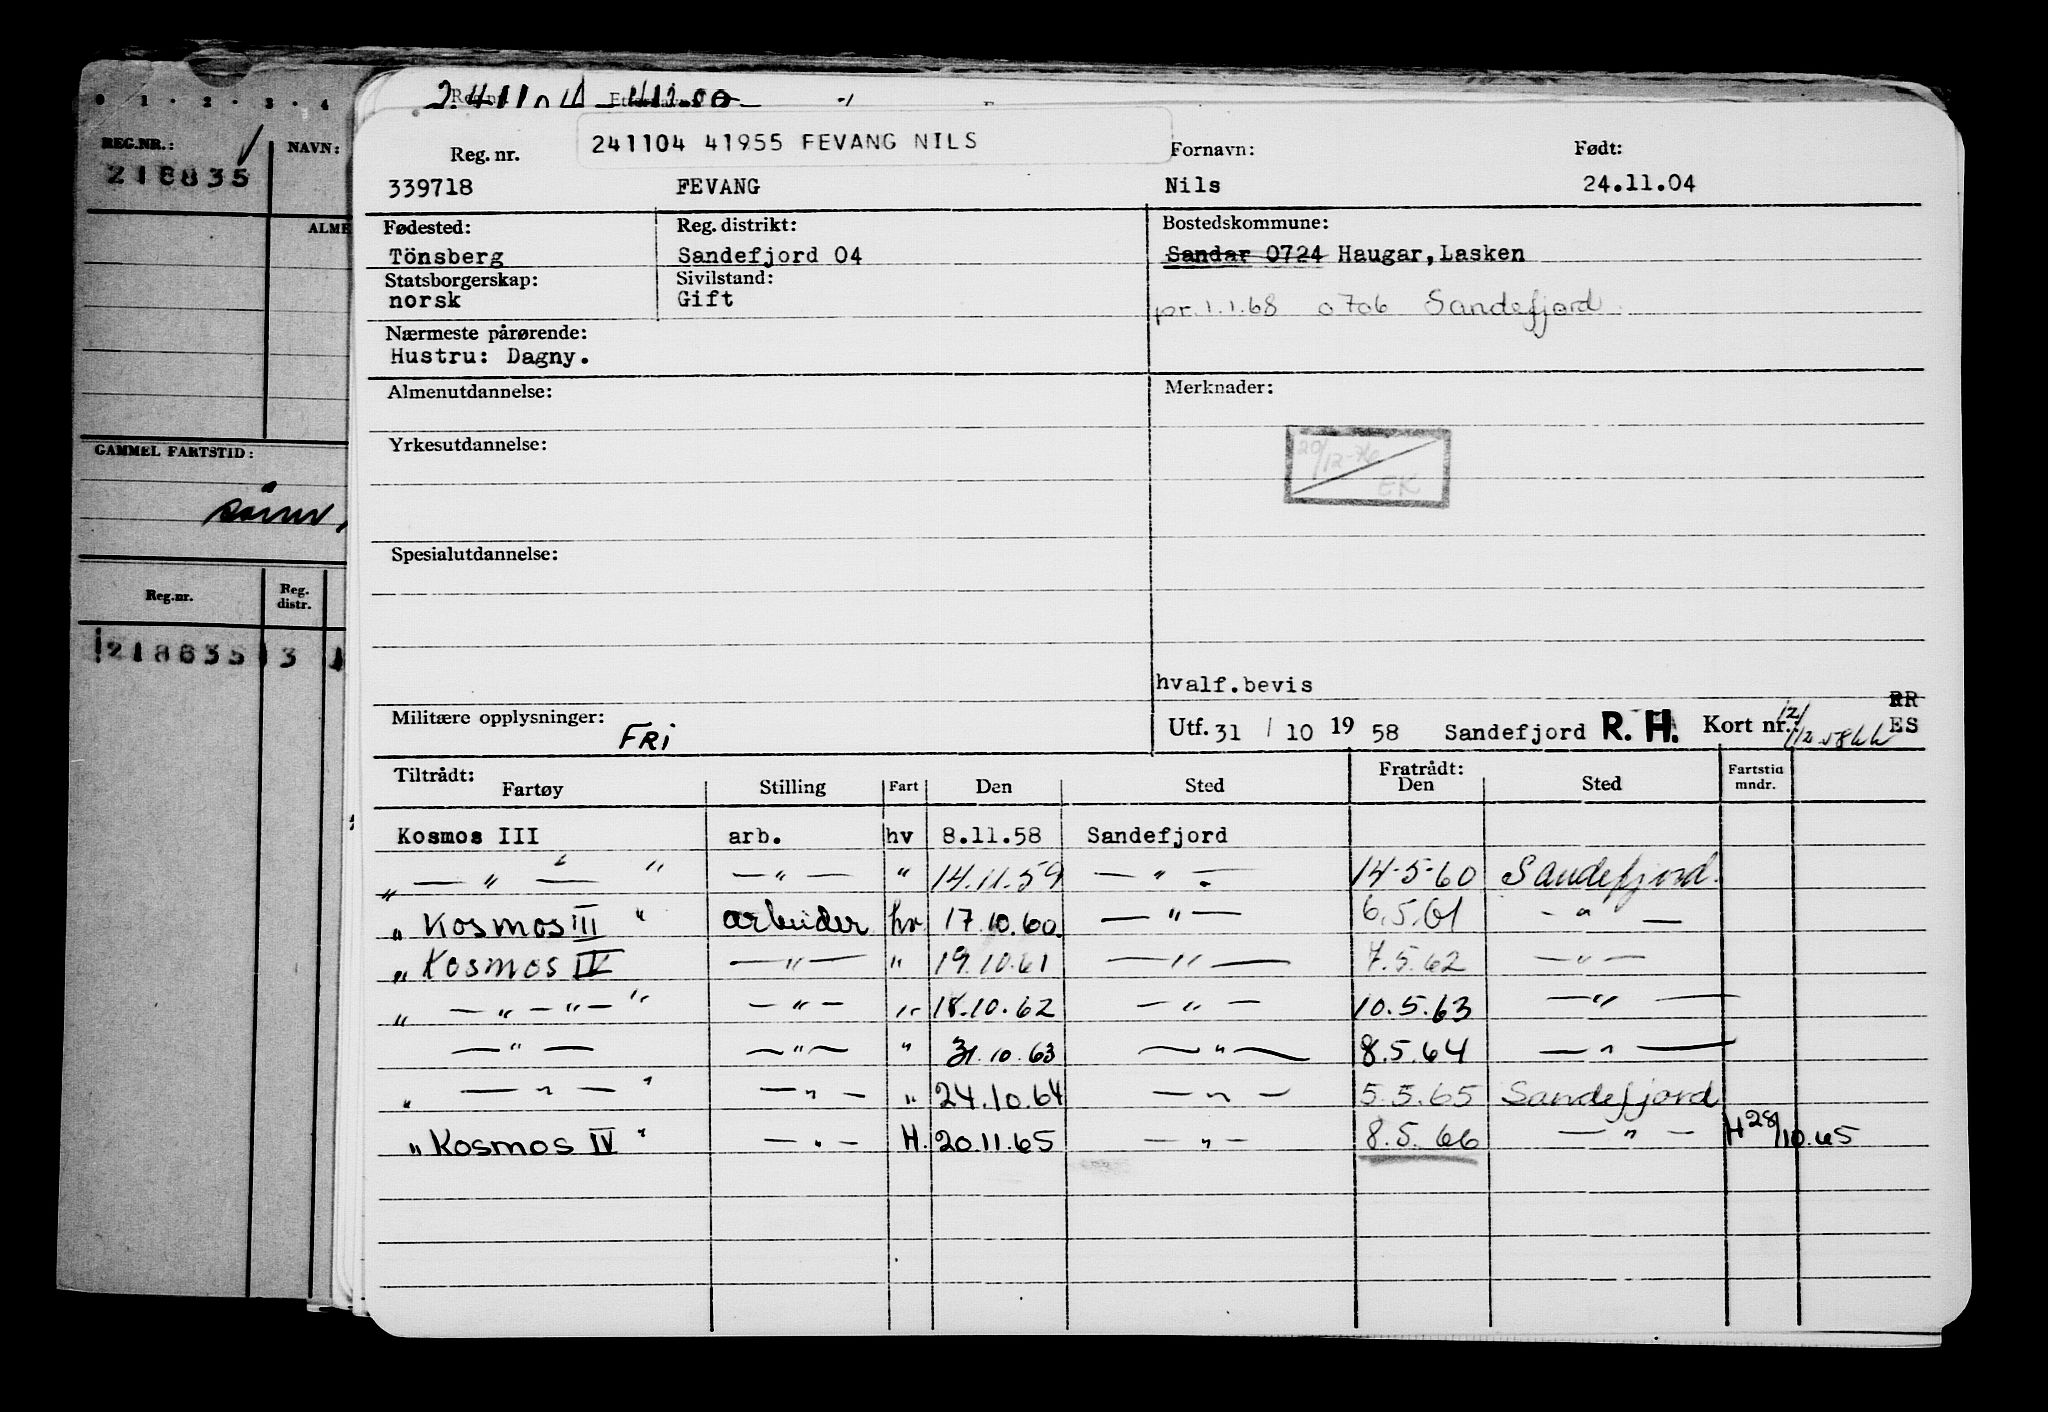 0 1 · 2 · 3 · 4
REG.NR.: NAVN:
218835
ALME
GAMMEL FARTSTID:
Reg.nr. Reg. distr.
218835 3
241104
241104 41955 FEVANG NILS
Reg. nr. Fornavn: Født:
339718 FEVANG Nils 24.11.04
Fødested: Reg. distrikt: Bostedskommune:
Tönsberg Sandefjord 04 Sandar 0724 Haugar, Lasken
Statsborgerskap: Sivilstand:
norsk Gift pr. 1.1.68 0706 Sandefjord
Nærmeste pårørende:
Hustru: Dagny.
Almenutdannelse: Merknader:
Yrkesutdannelse:
20/12-76
EK
Spesialutdannelse:
hvalf.bevis
Militære opplysninger: FRI
Utf. 31 / 10 19 58 Sandefjord R. H. Kort nr. ES
Tiltrådt: Fratrådt:
Fartøy Stilling Fart Den Sted Den Sted Fartstid mndr.
Kosmos III arb. hv 8.11.58 Sandefjord
" — " — " — " — " 14.11.59 — " — 14-5-60 Sandefjord.
" Kosmos III " arbeider hv 17.10.60. — " — 6.5.61 — " —
" Kosmos IV — " — " 19.10.61 — " — 7.5.62 — " —
" — " — " — " — " — " 18.10.62 — " — 10.5.63 — " —
— " — — " — " 31.10.63 — " — 8.5.64 — " —
" — " — " — " — " 24.10.64 — " — 5.5.65 Sandefjord
" Kosmos IV " — " — H. 20.11.65 — " — 8.5.66 — " — H 28/10.65